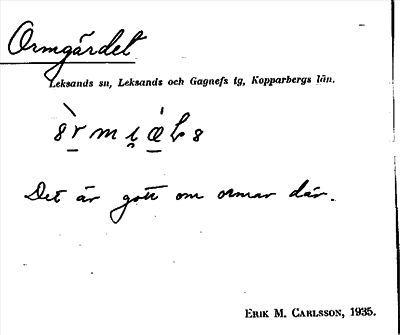 Ormgärdet
Leksands sn, Leksands och Gagnefs tg, Kopparbergs län.
Det är gott om ormar där.
ERIK M. CARLSSON, 1935.